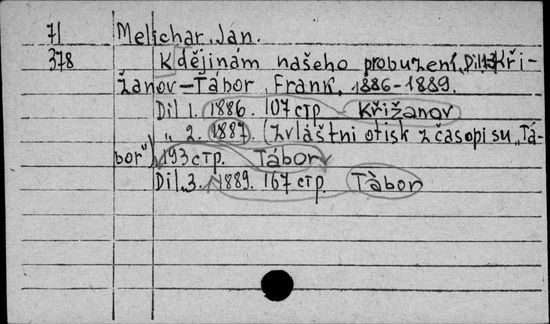 71 Melichar Jan.
378 K dějinám našeho probuzení, Díl 1-3 Kři-
žanov-Tábor, Frank, 1886-1889.
Díl 1. 1886. 107 стр. Křižanov
„ 2. 1887. (Zvláštní otisk z časopisu „Tá-
bor") 193 стр. Tábor
Díl 3. 1889. 167 стр. Tábor